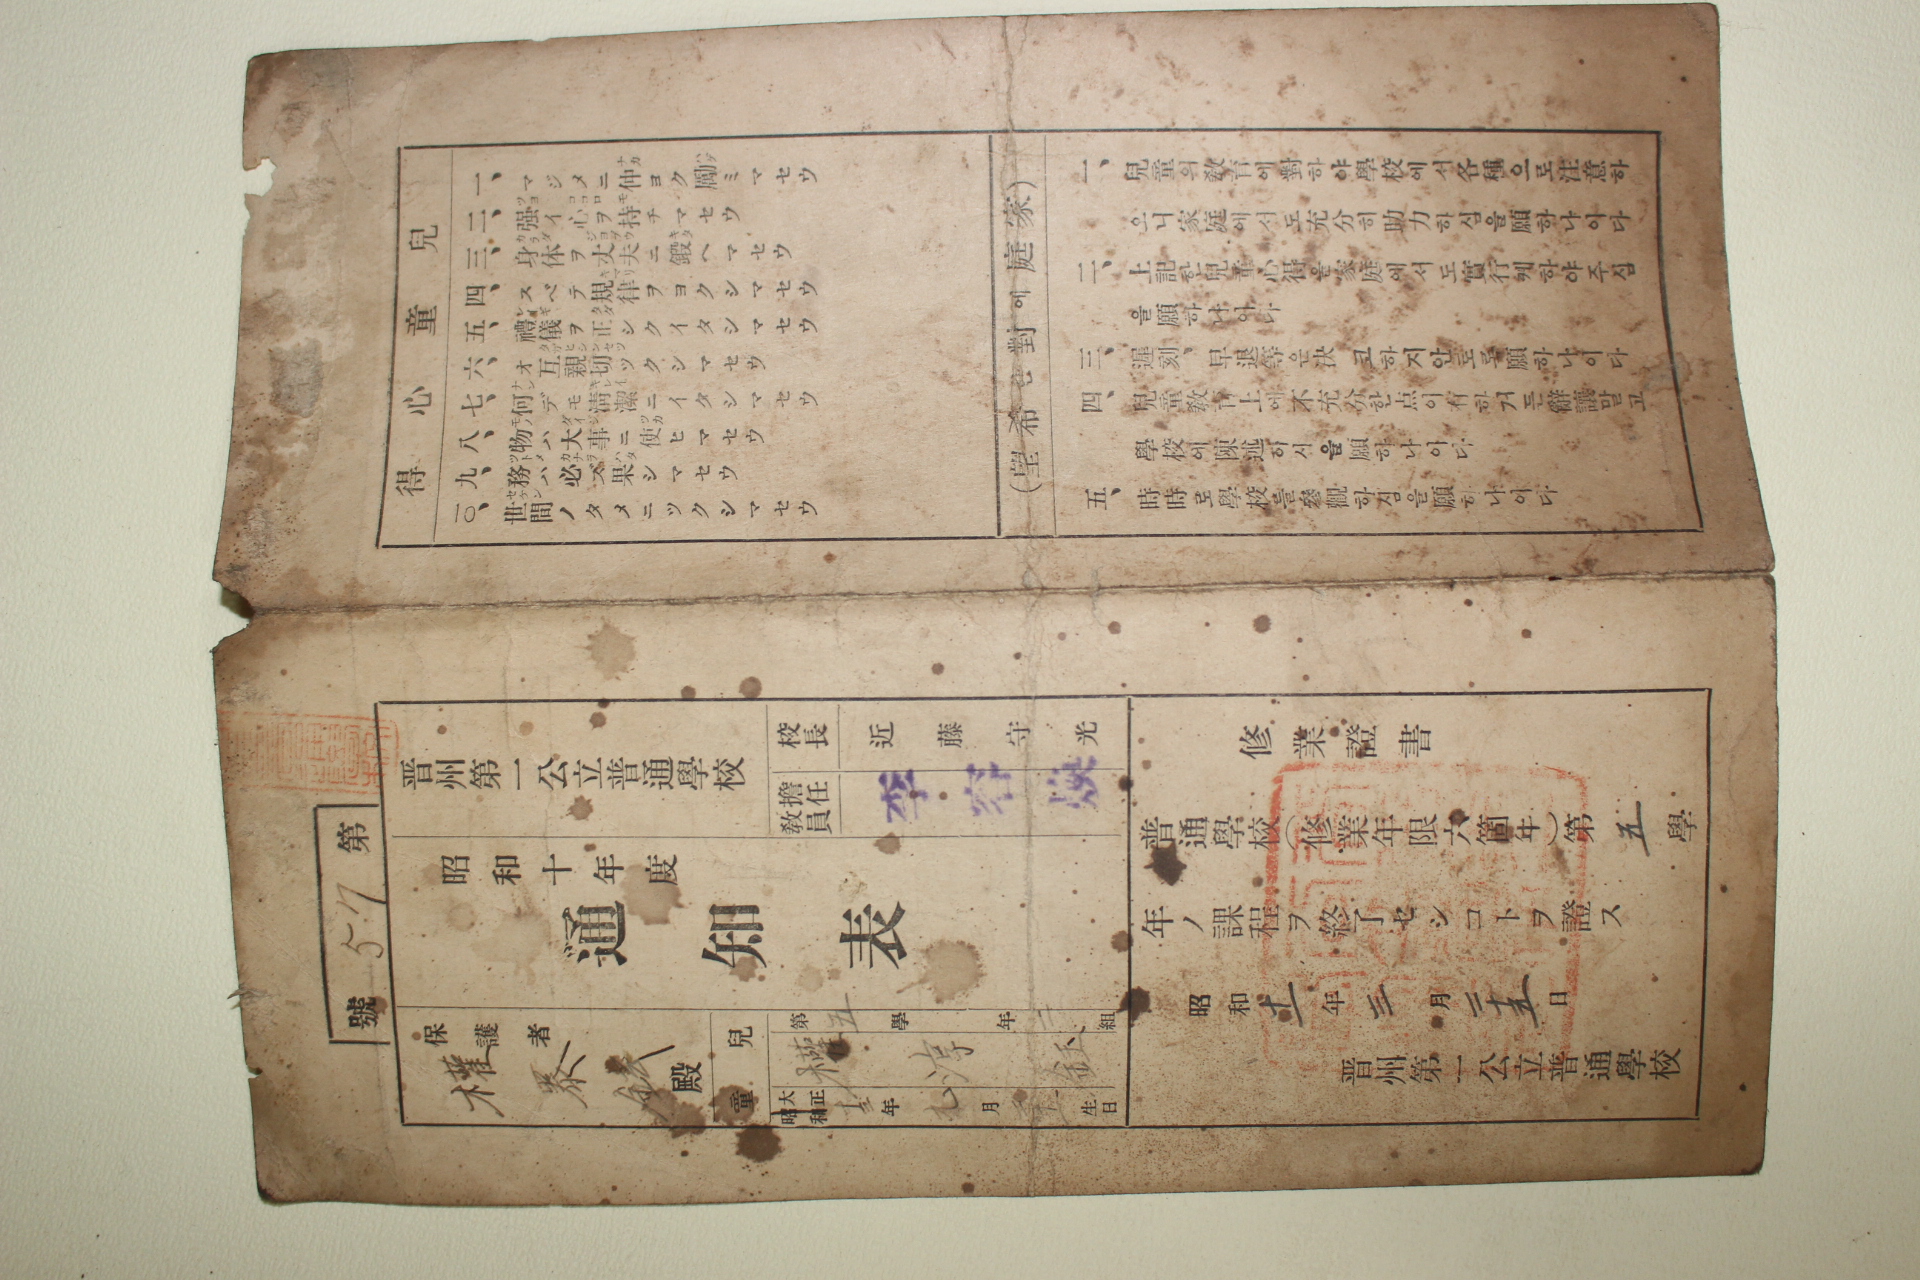 第 57 號
晋州第一公立普通學校
昭和十年度
通知表
校長 近藤守光
擔任教員 李
保護者 權泰 殿
兒童 第五學年 組
權淳
大正 昭和 年 月 日生
修業證書
普通學校(修業年限六箇年)第五學
年ノ課程ヲ終了セシコトヲ證ス
昭和十一年三月二十五日
晋州第一公立普通學校
兒童心得
一、マジメニ仲ヨク勵ミマセウ
二、强イ心ヲ持チマセウ
三、身体ヲ丈夫ニ鍛ヘマセウ
四、スベテ規律ヲヨクシマセウ
五、禮儀ヲ正シクイタシマセウ
六、オ互親切ツクシマセウ
七、何デモ淸潔ニイタシマセウ
八、物ハ大事ニ使ヒマセウ
九、務ハ必ズ果シマセウ
一〇、世間ノタメニツクシマセウ
(望希 對에庭家)
一、兒童의敎育에對하야學校에서各種으로注意하
오니家庭에서도充分히助力하심을願하나이다
二、上記한兒童心得을家庭에서도實行케하야주심
을願하나이다
三、遲刻、早退等은決코하지안토록願하나이다
四、兒童敎育上에不充分한点이有하거든辭讓말고
學校에陳述하시을願하나이다
五、時時로學校를參觀하심을願하나이다